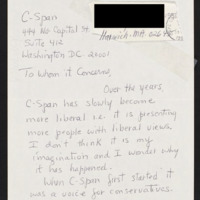 C-Span
444 No. Capitol St.
Suite 412
Washington D.C. 20001
Harwich, MA 026
To whom it Concerns,
Over the years,
C-Span has slowly become
more liberal i.e. it is presenting
more people with liberal views.
I don't think it is my
imagination and I wonder why
it has happened.
When C-Span first started it
was a voice for conservatives.